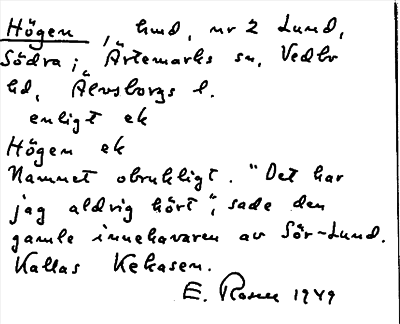 Högen, hmd, nr 2 Lund,
Södra; Ärtemarks sn, Vedbo
hd, Älvsborgs l.
enligt ek
Högen ek
Namnet obrukligt. "Det har
jag aldrig hört", sade den
gamle innehavaren av Sör-Lund.
Kallas Kekasen.
E. Rosen 1949